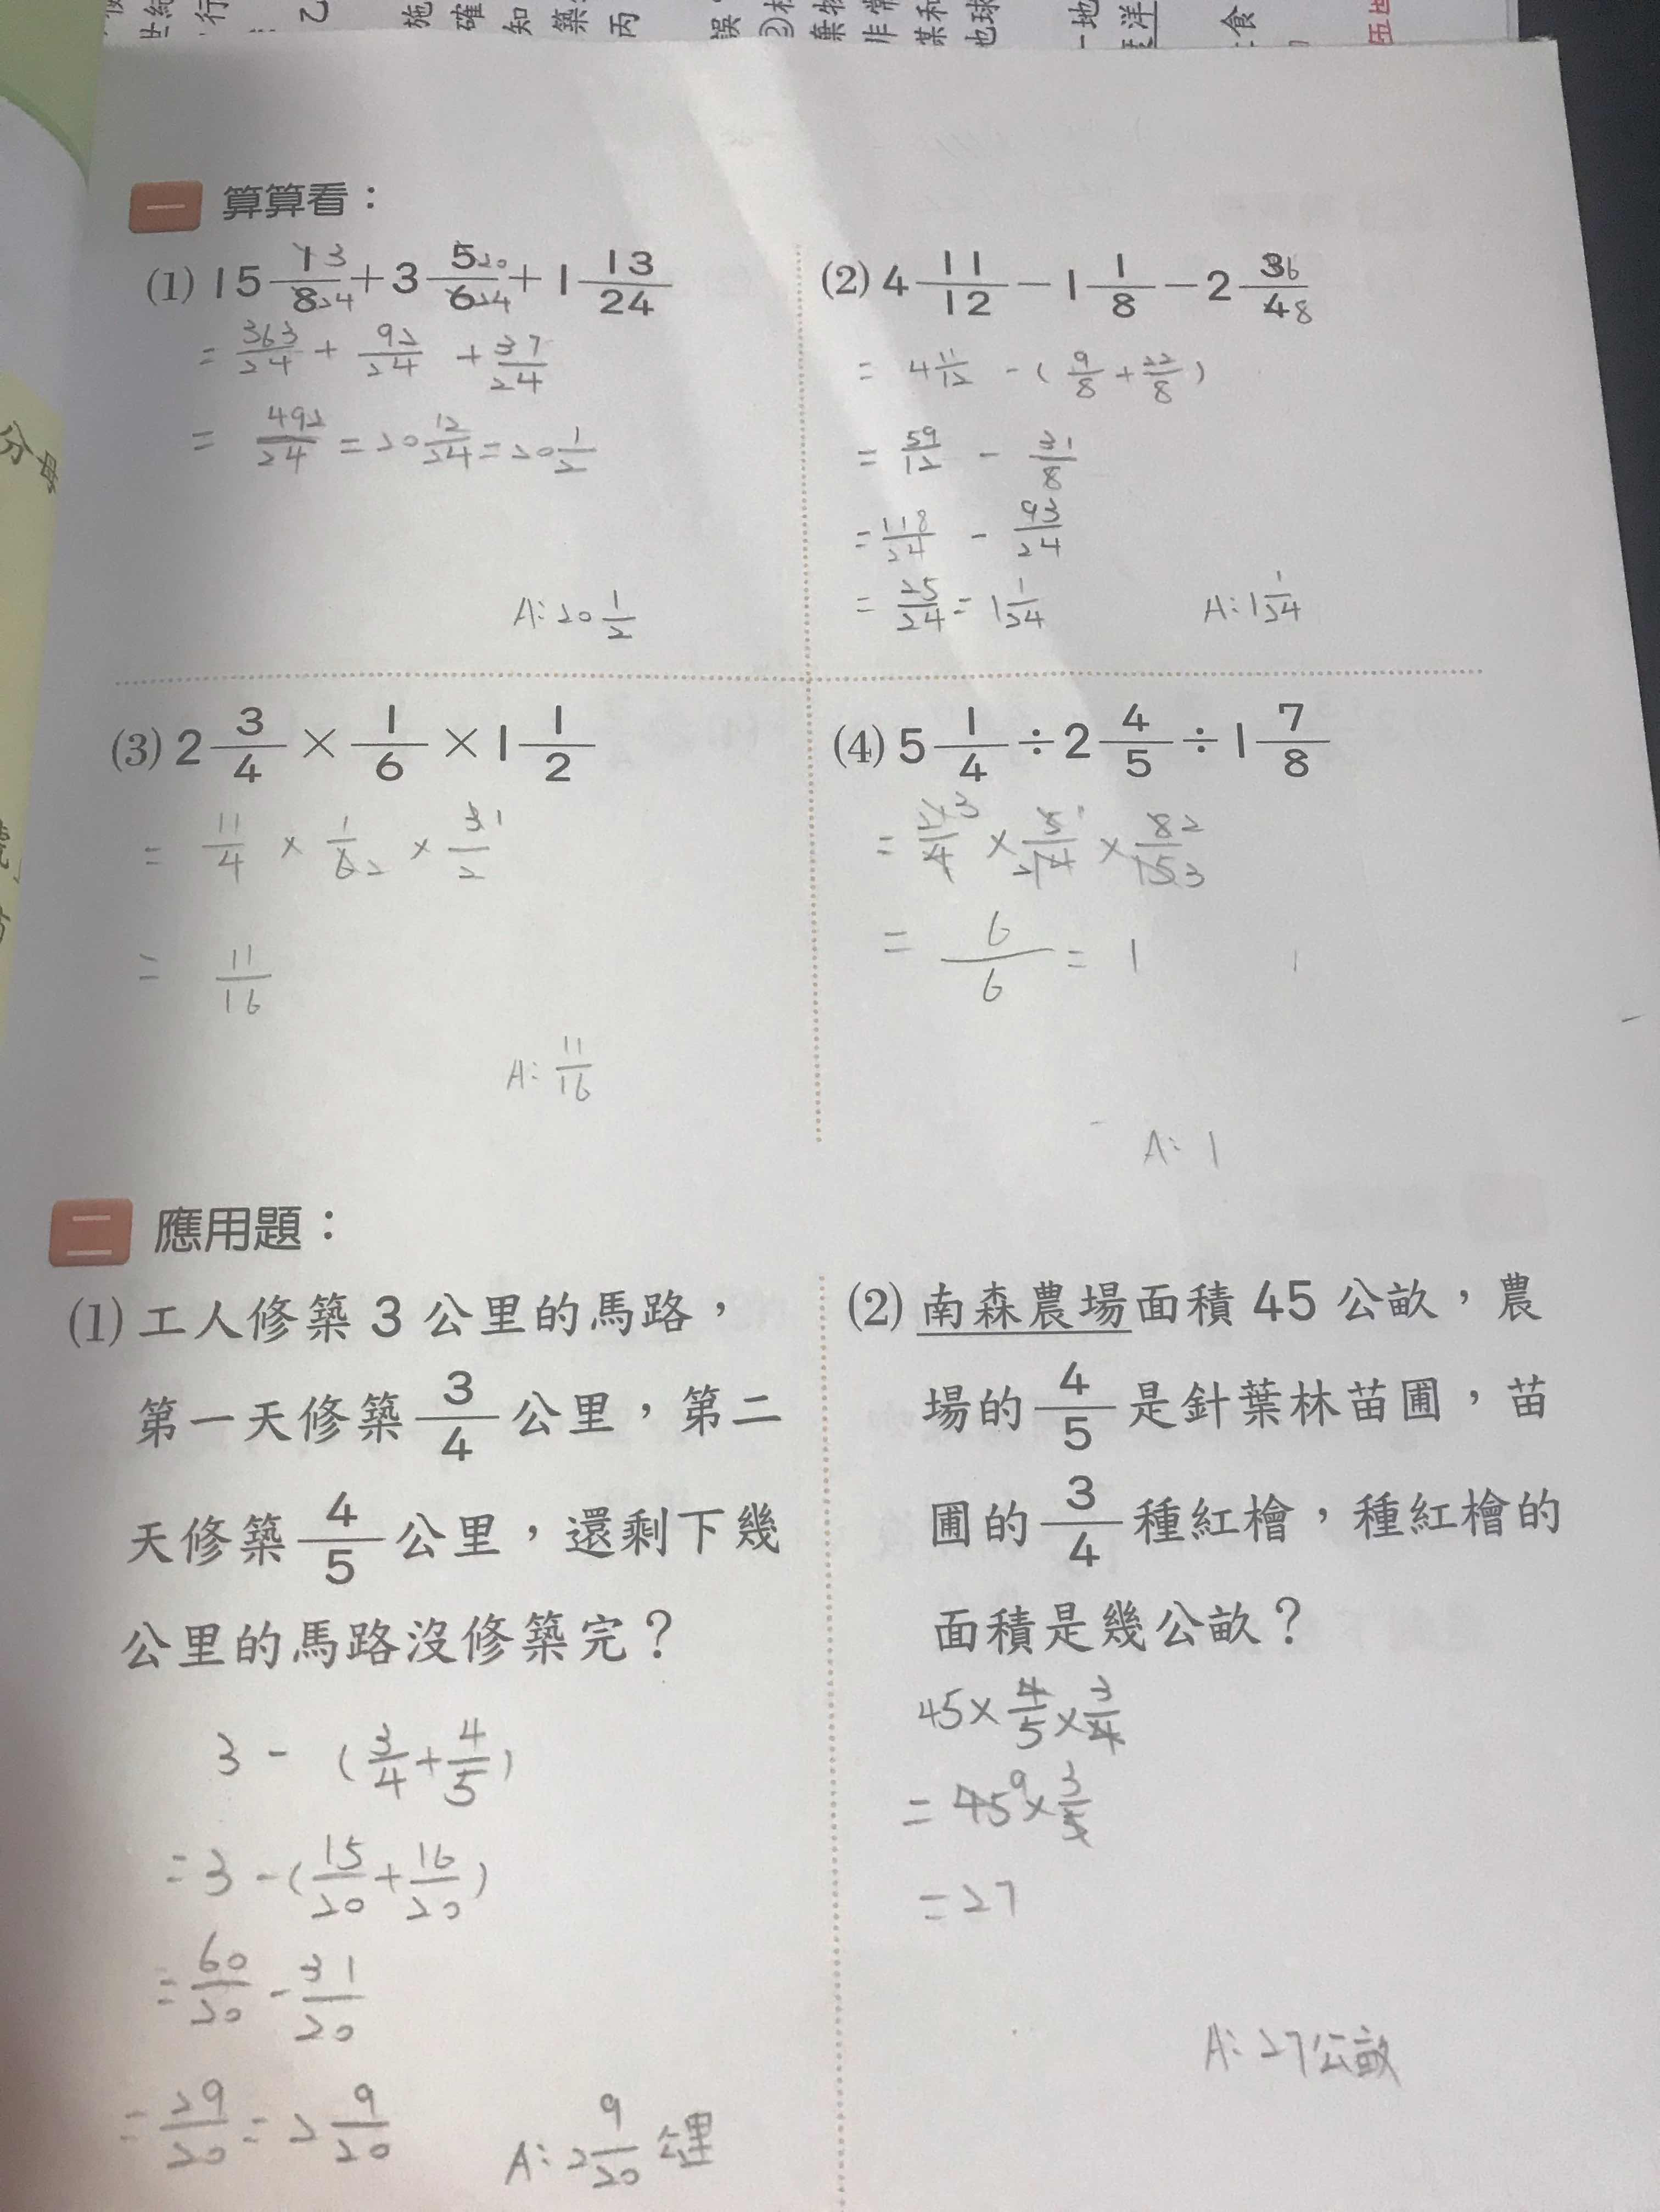 一 算算看：
(1) 15 1/8 + 3 5/6 + 1 13/24
3 24 20 24
= 363/24 + 92/24 + 37/24
= 492/24 = 20 12/24 = 20 1/2
A: 20 1/2
(2) 4 11/12 − 1 1/8 − 2 3/4
6 8
= 4 11/12 − ( 9/8 + 22/8 )
= 59/12 − 31/8? 
= 118/24 − 93/24
= 25/24 = 1 1/24
A: 1 1/24
(3) 2 3/4 × 1/6 × 1 1/2
= 11/4 × 1/6 2 × 3 1/2
= 11/16
A: 11/16
(4) 5 1/4 ÷ 2 4/5 ÷ 1 7/8
= 21 3/4 × 5 1/14 2 × 8 2/15 3
= 6/6 = 1
A: 1
二 應用題：
(1) 工人修築 3 公里的馬路，
第一天修築 3/4 公里，第二
天修築 4/5 公里，還剩下幾
公里的馬路沒修築完？
3 − ( 3/4 + 4/5 )
= 3 − ( 15/20 + 16/20 )
= 60/20 − 31/20
= 29/20 = 2 9/20
A: 2 9/20 公里
(2) 南森農場面積 45 公畝，農
場的 4/5 是針葉林苗圃，苗
圃的 3/4 種紅檜，種紅檜的
面積是幾公畝？
45 × 4/5 × 3/4
= 45 9 × 3/5
= 27
A: 27公畝